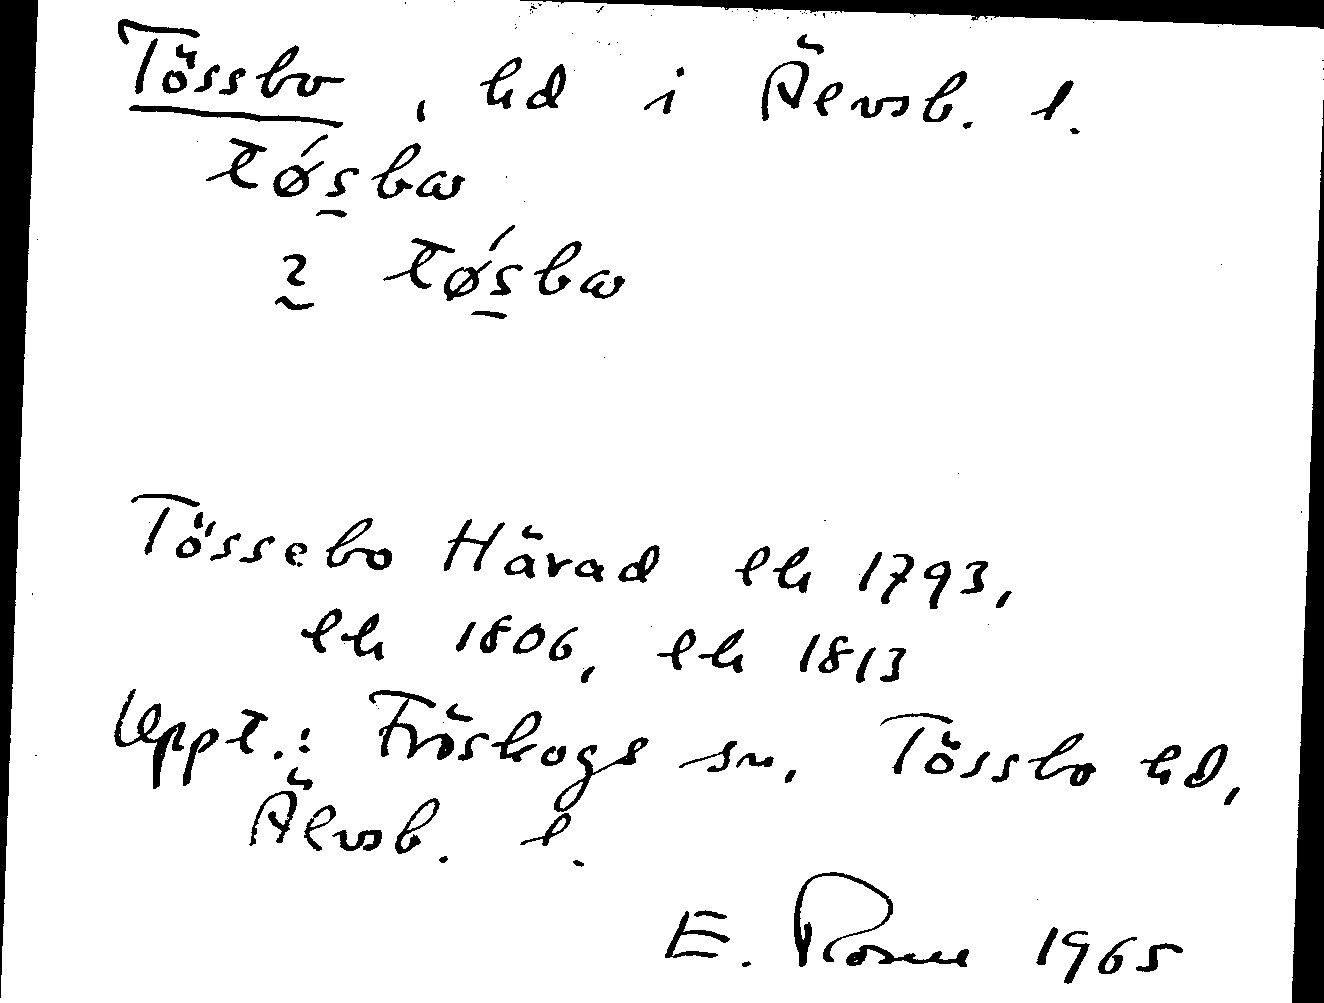 Tössbo, hd i Älvsb. l.
tǿs̠bɷ
2 tǿs̠bɷ
Tössebo Härad lh 1793,
lh 1806, lh 1813
Uppt.: Fröskogs sn, Tössbo hd,
Älvsb. l.
E. 1965